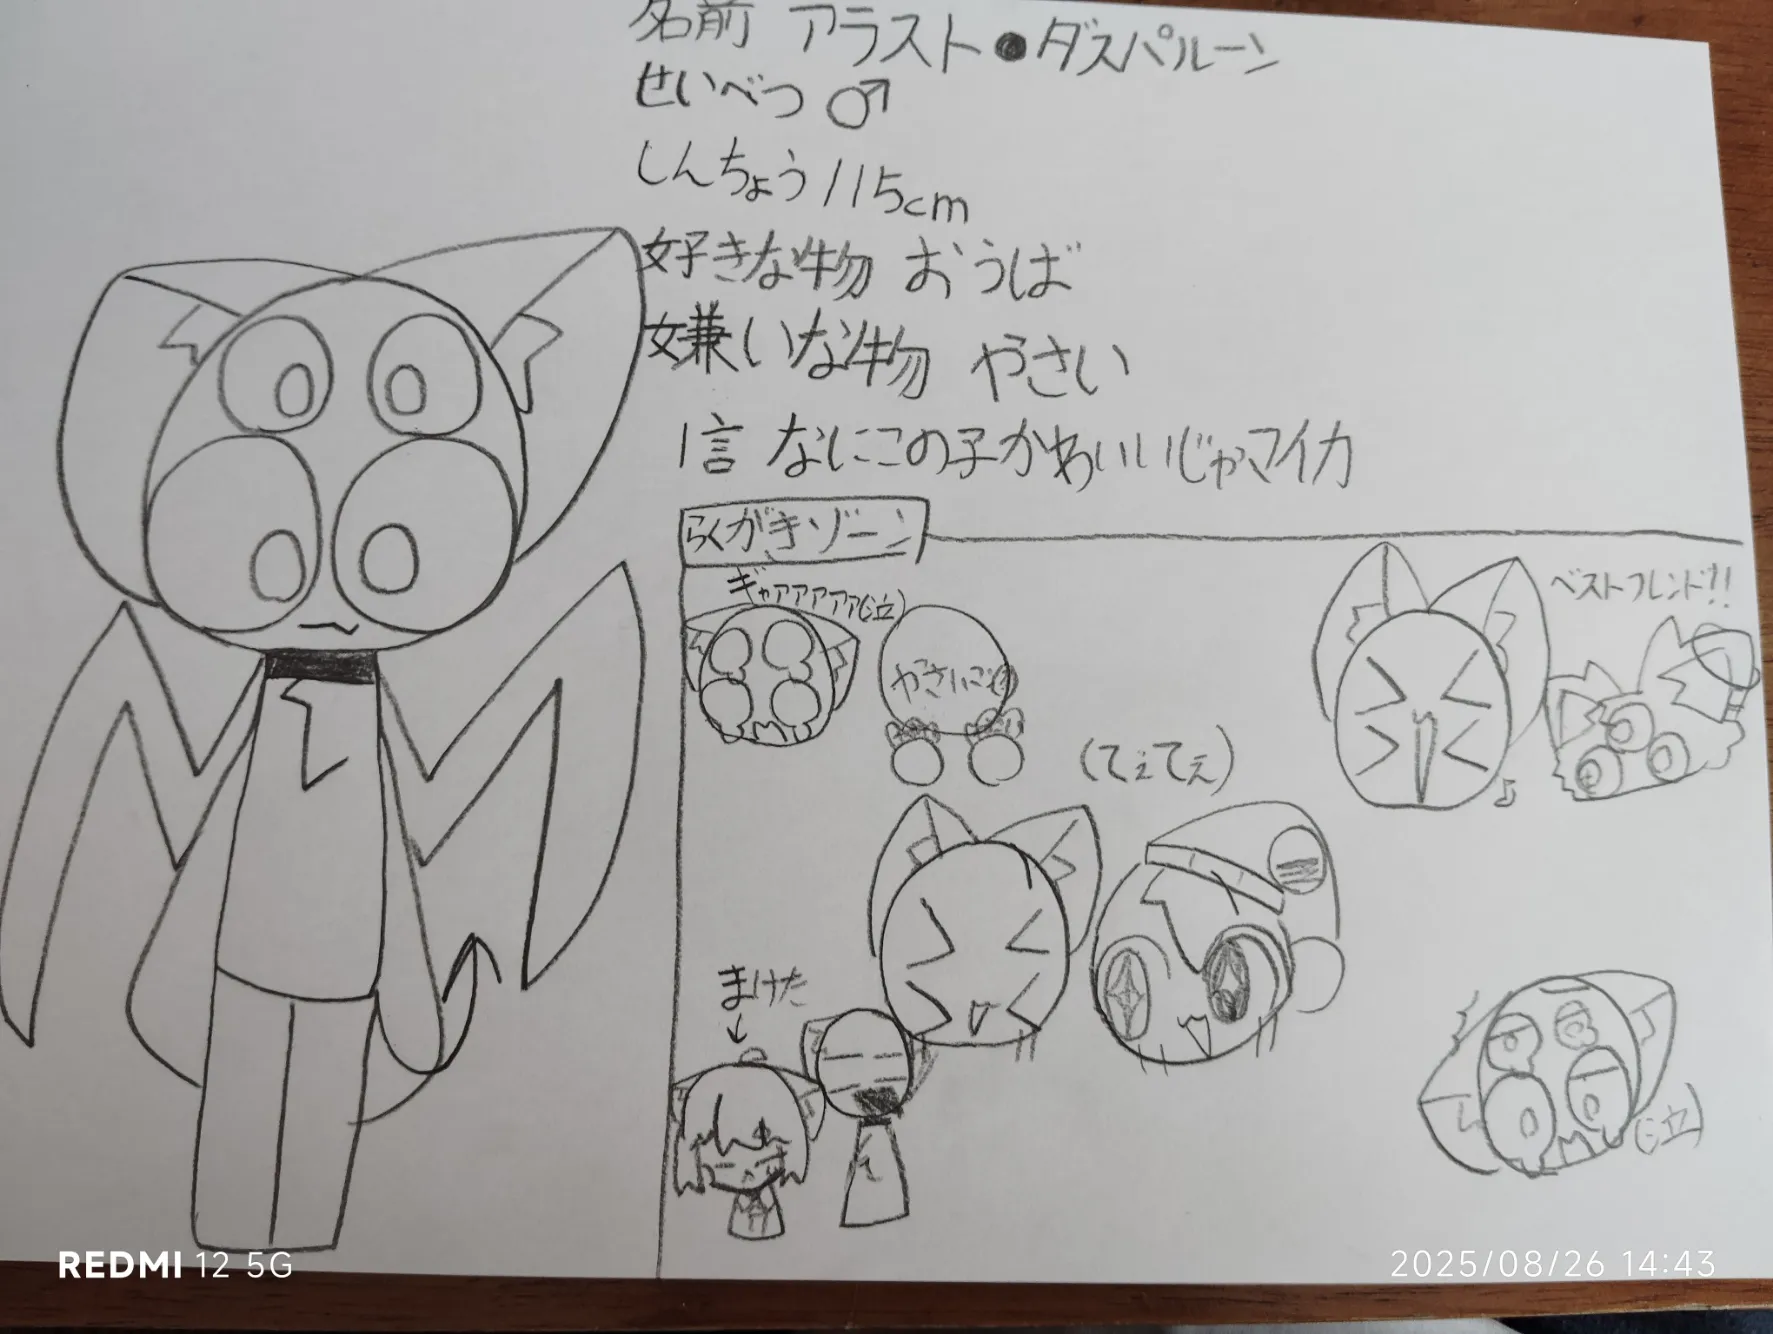 名前 アラスト●ダスパルーン
せいべつ ♂
しんちょう 115cm
好きな物 おうば
嫌いな物 やさい
1言 なにこの子かわいいじゃマイカ
らくがきゾーン
ギャアアアアア(泣)
ベストフレンド!!
(てぇてぇ)
まけた
(泣)
REDMI 12 5G
2025/08/26 14:43